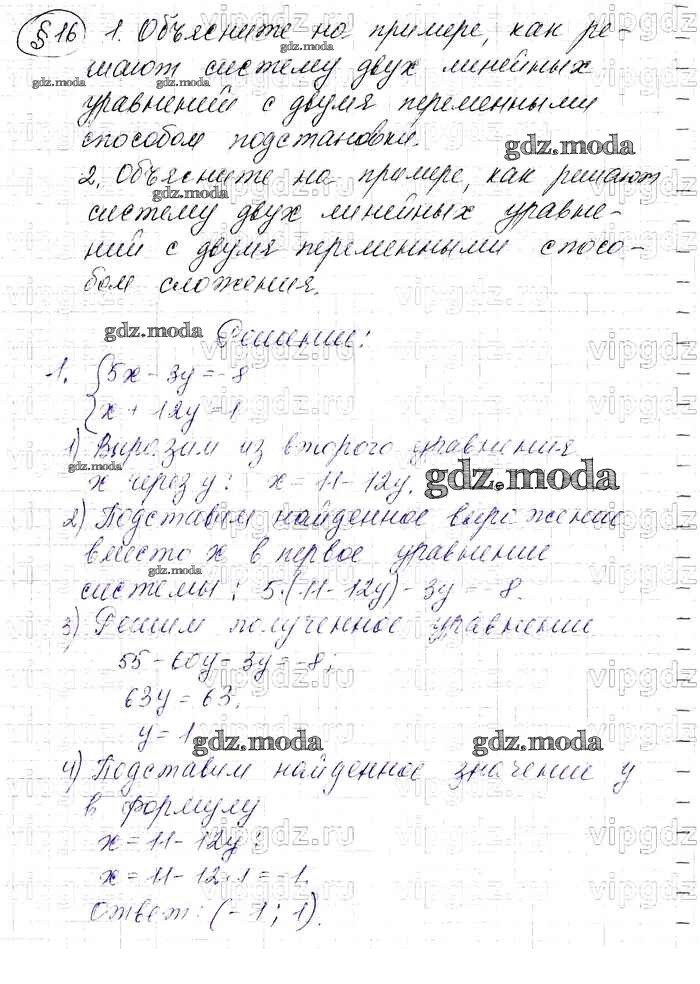 § 16 1. Объясните на примере, как ре-
шают систему двух линейных
уравнений с двумя переменными
способом подстановки.
2. Объясните на примере, как решают
систему двух линейных уравне-
ний с двумя переменными спосо-
бом сложения.
Решение:
1. {5x - 3y = -8
{x + 12y = 11
1) Выразим из второго уравнения
x через y: x = 11 - 12y.
2) Подставим найденное выражение
вместо x в первое уравнение
системы: 5·(11 - 12y) - 3y = -8.
3) Решим полученное уравнение
55 - 60y - 3y = -8;
63y = 63;
y = 1
4) Подставим найденное значение y
в формулу
x = 11 - 12y:
x = 11 - 12·1 = -1.
Ответ: (-1; 1).
gdz.moda
vipgdz.ru